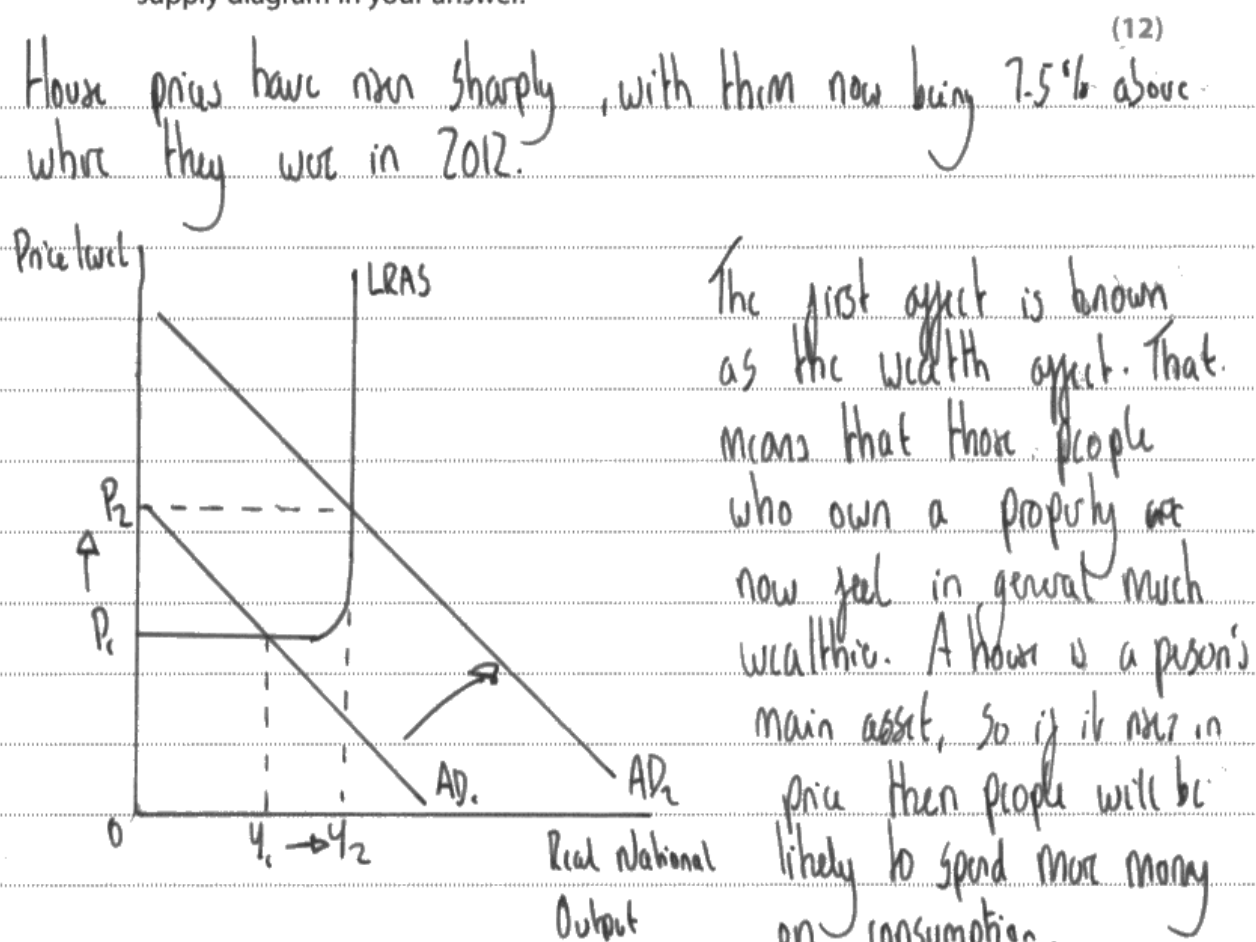 supply diagram in your answer.
(12)
House prices have risen sharply, with them now being 7.5% above
where they were in 2012.
Price level
LRAS
P2
P1
AD1
AD2
0
Y1 → Y2
Real National
Output
The first affect is known
as the wealth affect. That
means that those people
who own a property
now feel in general much
wealthier. A house is a person's
main asset, so if it rises in
price then people will be
likely to spend more money
on consumption.